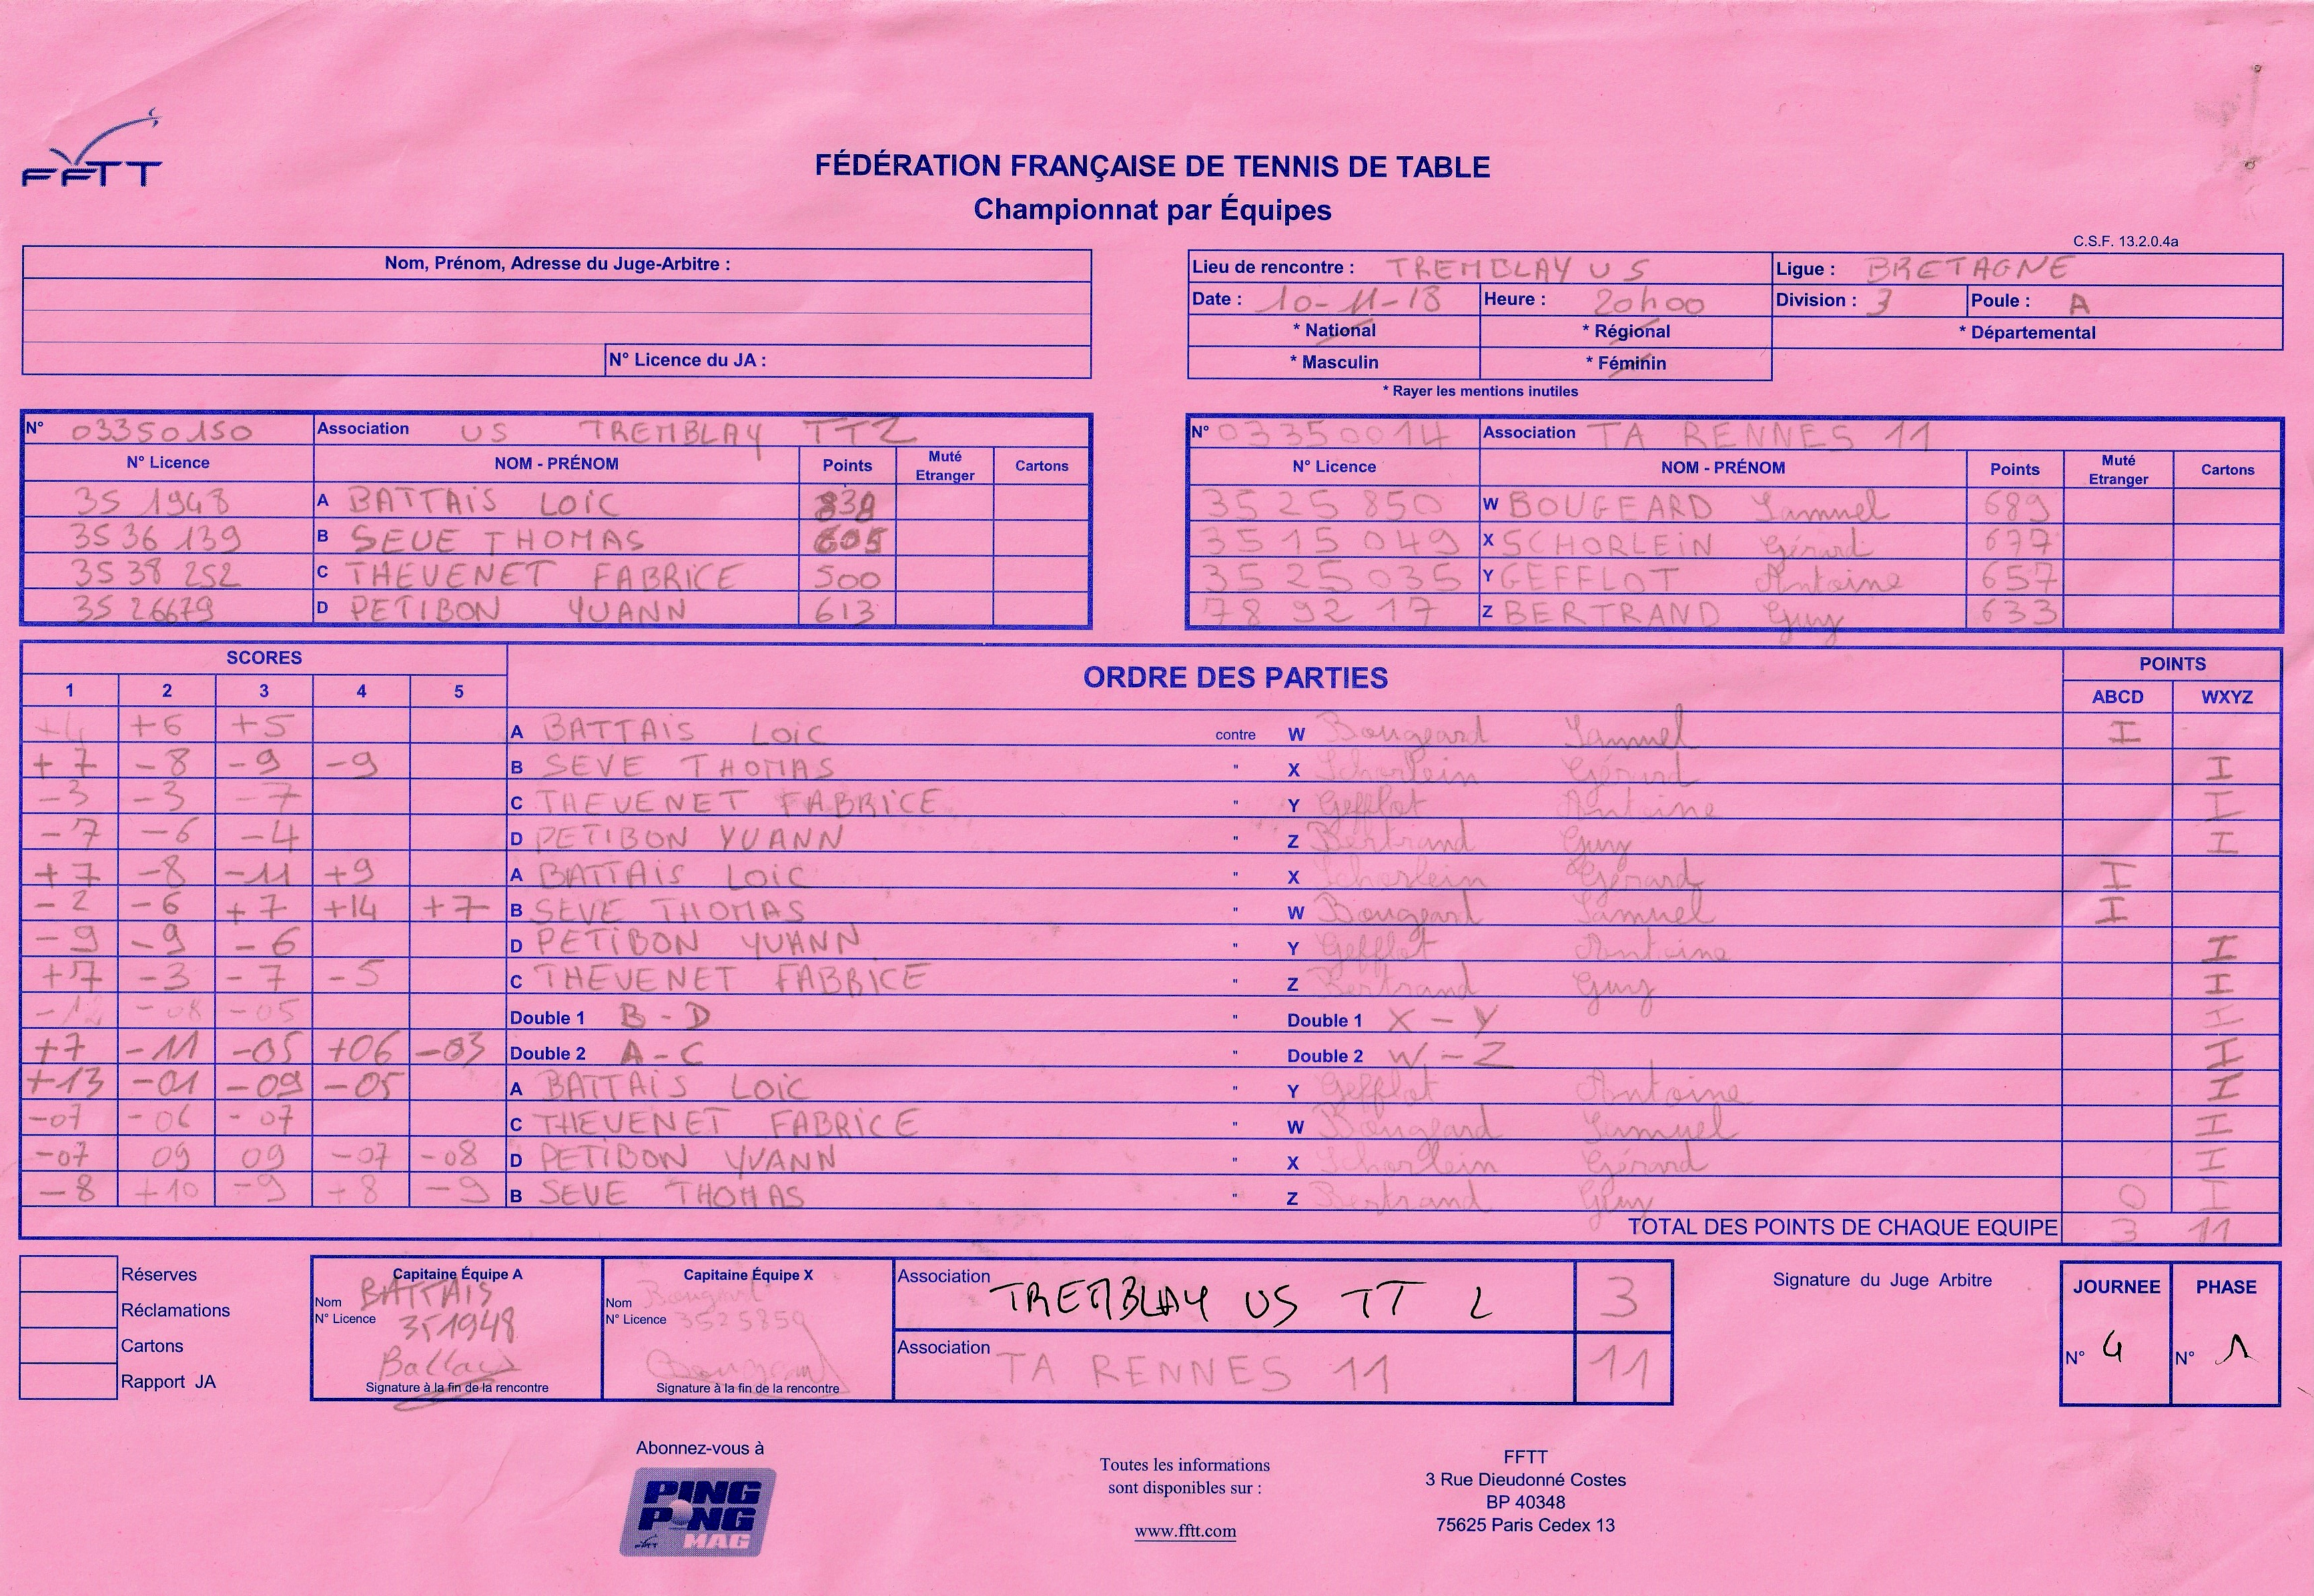 FFTT
FÉDÉRATION FRANÇAISE DE TENNIS DE TABLE
Championnat par Équipes
C.S.F. 13.2.0.4a
Nom, Prénom, Adresse du Juge-Arbitre :
N° Licence du JA :
Lieu de rencontre : TREMBLAY US Ligue : BRETAGNE
Date : 10-11-18 Heure : 20h00 Division : 3 Poule : A
* National * Régional * Départemental
* Masculin * Féminin
* Rayer les mentions inutiles
N° 03350150 Association US TREMBLAY TT2
N° Licence NOM - PRÉNOM Points Muté Etranger Cartons
35 1948 A BATTAIS LOIC 839
3536 139 B SEVE THOMAS 605
3538 252 C THEVENET FABRICE 500
35 26679 D PETIBON YVANN 613
N° 03350014 Association TA RENNES 11
N° Licence NOM - PRÉNOM Points Muté Etranger Cartons
35 25 850 W BOUGEARD Samuel 689
35 15 049 X SCHORLEIN Gérard 677
35 25 035 Y GEFFLOT Antoine 657
78 92 17 Z BERTRAND Guy 633
SCORES ORDRE DES PARTIES POINTS
1 2 3 4 5 ABCD WXYZ
+4 +6 +5 A BATTAIS LOIC contre W Bougeard Samuel I
+7 -8 -9 -9 B SEVE THOMAS " X Schorlein Gérard I
-3 -3 -7 C THEVENET FABRICE " Y Gefflot Antoine I
-7 -6 -4 D PETIBON YVANN " Z Bertrand Guy I
+7 -8 -11 +9 A BATTAIS LOIC " X Schorlein Gérard I
-2 -6 +7 +14 +7 B SEVE THOMAS " W Bougeard Samuel I
-9 -9 -6 D PETIBON YVANN " Y Gefflot Antoine I
+7 -3 -7 -5 C THEVENET FABRICE " Z Bertrand Guy I
-12 -08 -05 Double 1 B-D " Double 1 X-Y I
+7 -11 -05 +06 -03 Double 2 A-C " Double 2 W-Z I
+13 -01 -09 -05 A BATTAIS LOIC " Y Gefflot Antoine I
-07 -06 -07 C THEVENET FABRICE " W Bougeard Samuel I
-07 09 09 -07 -08 D PETIBON YVANN " X Schorlein Gérard I
-8 +10 -9 +8 -9 B SEVE THOMAS " Z Bertrand Guy 0 I
TOTAL DES POINTS DE CHAQUE EQUIPE 3 11
Réserves
Réclamations
Cartons
Rapport JA
Capitaine Équipe A
Nom BATTAIS
N° Licence 351948
Battais
Signature à la fin de la rencontre
Capitaine Équipe X
Nom Bougeard
N° Licence 3525850
Bougeard
Signature à la fin de la rencontre
Association TREMBLAY US TT 2 3
Association TA RENNES 11 11
Signature du Juge Arbitre
JOURNEE PHASE
N° 4 N° 1
Abonnez-vous à
PING PONG MAG
Toutes les informations
sont disponibles sur :
www.fftt.com
FFTT
3 Rue Dieudonné Costes
BP 40348
75625 Paris Cedex 13